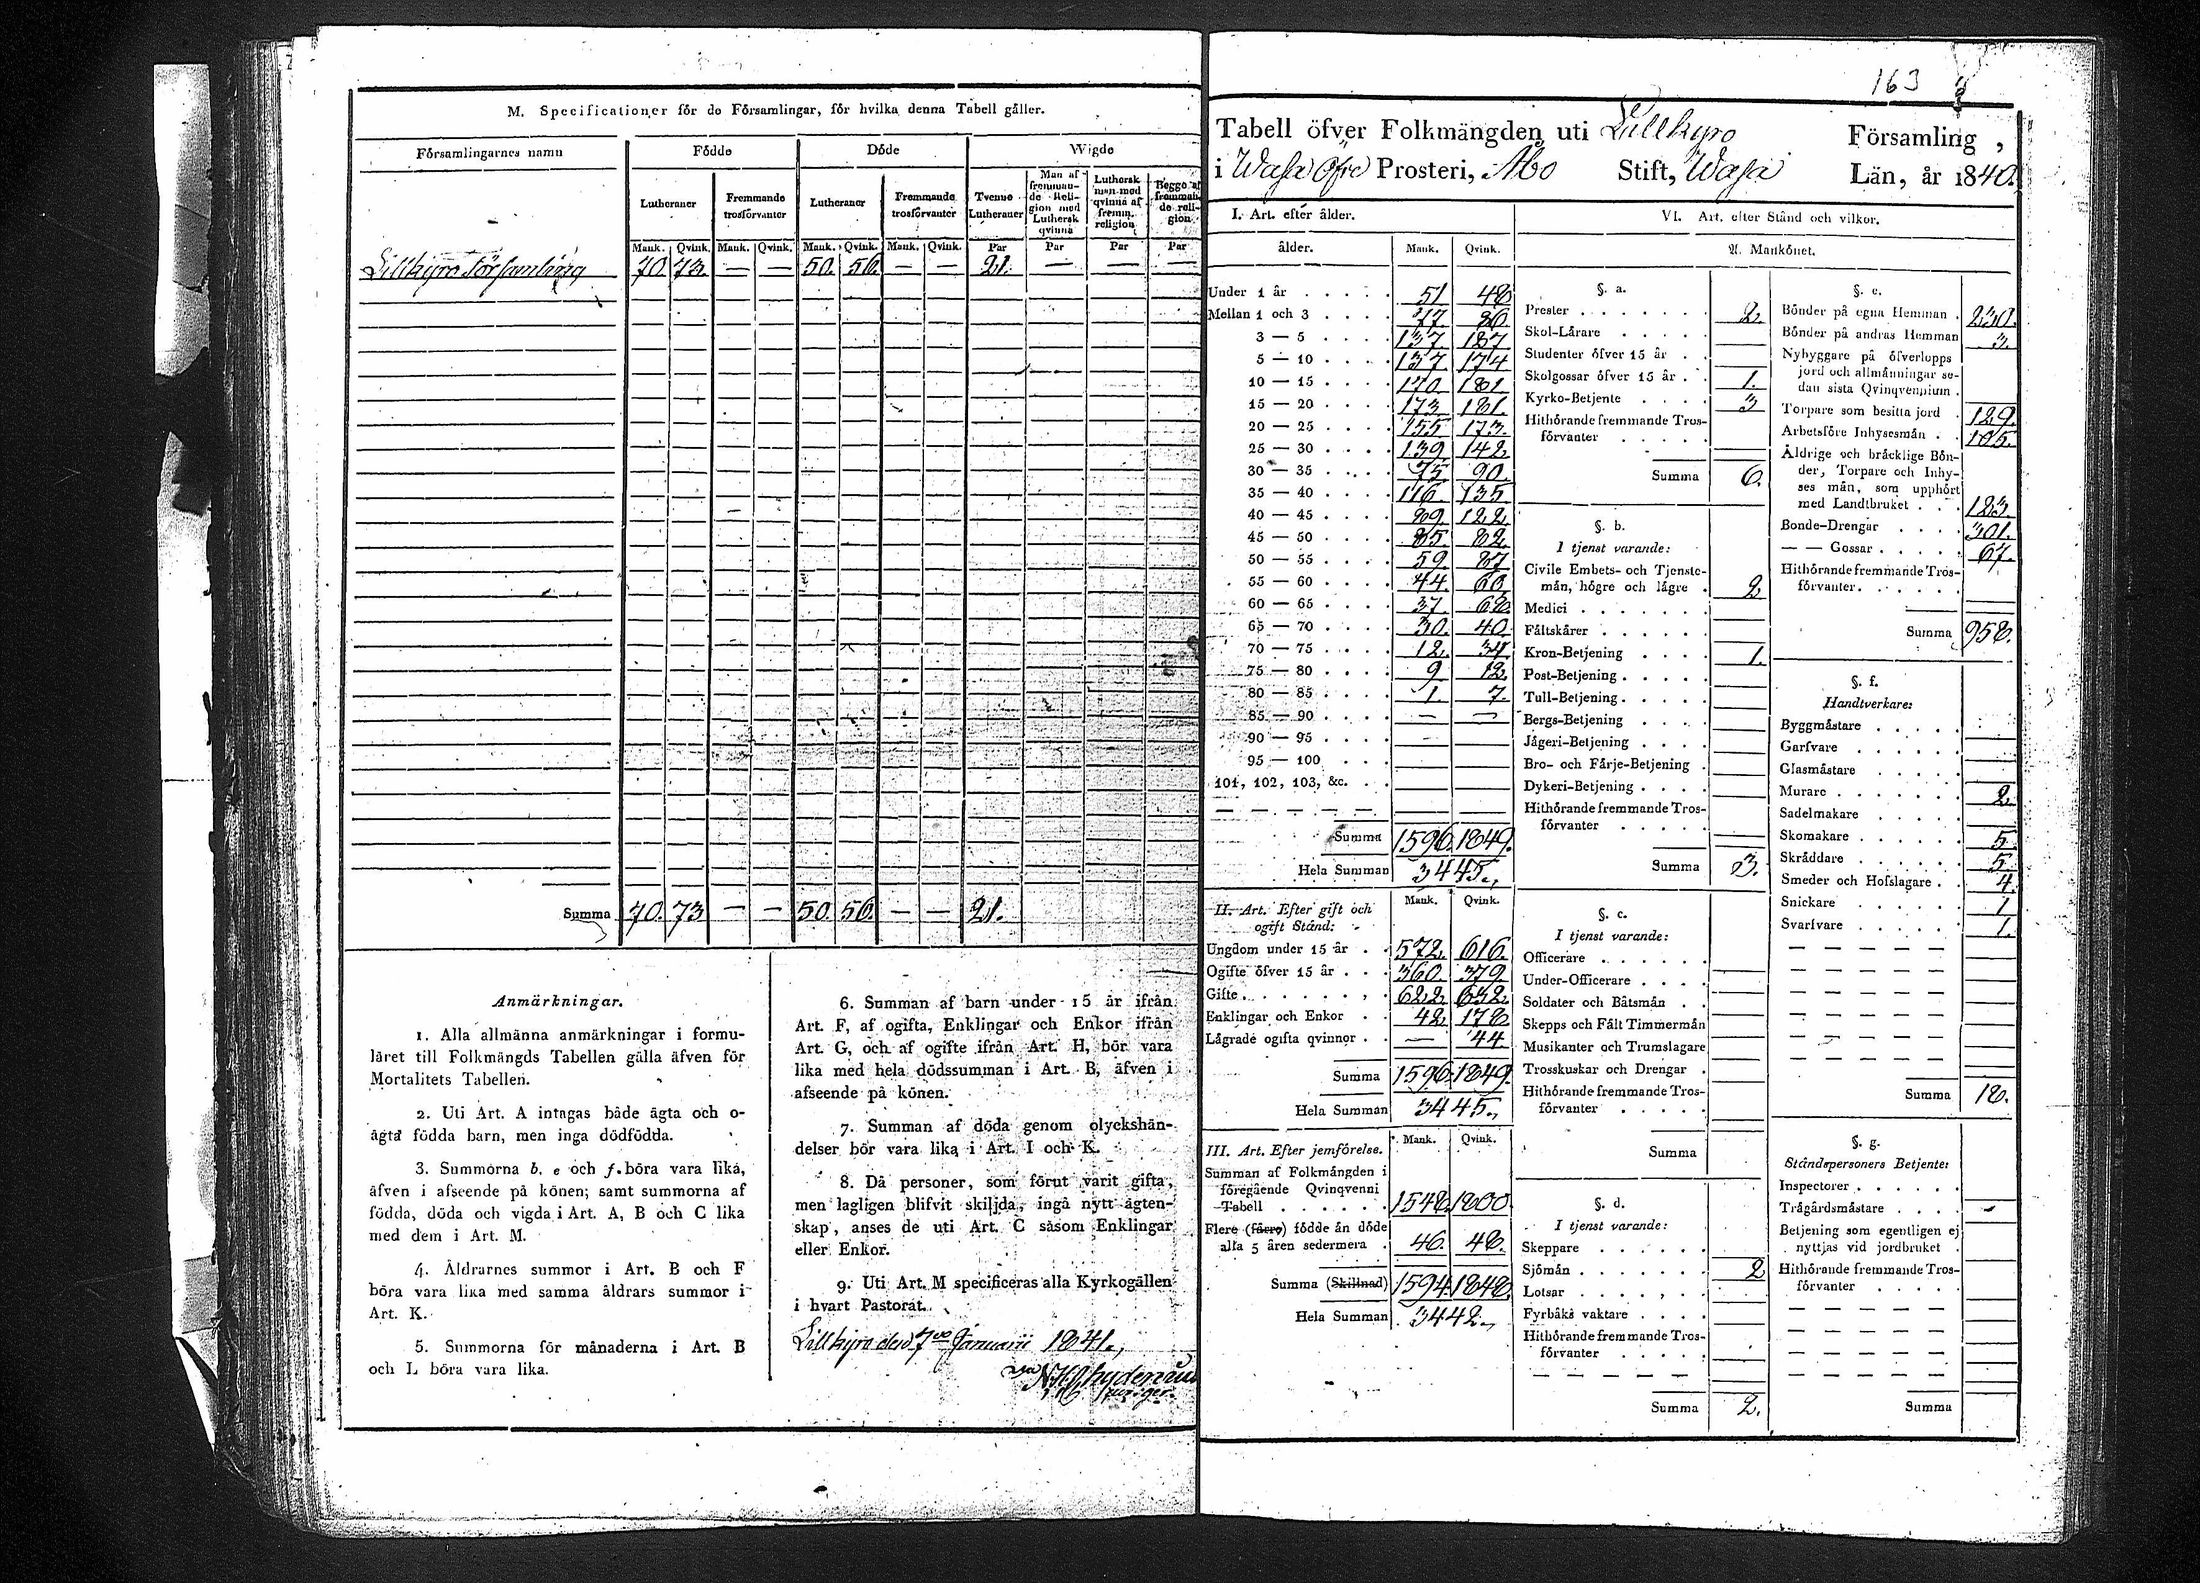 M. Specificationer för de Församlingar, för hvilka denna Tabell gäller.
Församlingarnes namn Födde Döde Wigde
Lutheraner Fremmande trosförvanter Lutheraner Fremmande trosförvanter Tvenne Lutheraner Man af fremmande Religion med Luthersk qvinna Luthersk man med qvinna af fremm. religion Begge af fremmande religion
Mank. Qvink. Mank. Qvink. Mank. Qvink. Mank. Qvink. Par Par Par Par
Lillkyro församling 70. 73. — — 50. 56. — — 21. — — —
Summa 70. 73 — — 50. 56. — — 21.
Anmärkningar.
1. Alla allmänna anmärkningar i formu-
läret till Folkmängds Tabellen gälla äfven för
Mortalitets Tabellen.
2. Uti Art. A intagas både ägta och o-
ägta födda barn, men inga dödfödda.
3. Summorna b, e och f. böra vara lika,
äfven i afseende på könen; samt summorna af
födda, döda och vigda i Art. A, B och C lika
med dem i Art. M.
4. Åldrarnes summor i Art. B och F
böra vara lika med samma åldrars summor i
Art. K.
5. Summorna för månaderna i Art. B
och L böra vara lika.
6. Summan af barn under 15 år ifrån
Art. F, af ogifta, Enklingar och Enkor ifrån
Art. G, och af ogifte ifrån Art. H, bör vara
lika med hela dödssumman i Art. B, äfven i
afseende på könen.
7. Summan af döda genom olyckshän-
delser bör vara lika i Art. I och K.
8. Då personer, som förut varit gifta,
men lagligen blifvit skiljda, ingå nytt ägten-
skap, anses de uti Art. C såsom Enklingar
eller Enkor.
9. Uti Art. M specificeras alla Kyrkogällen
i hvart Pastorat.
Lillkyro den 7 Januarii 1841.
163
Tabell öfver Folkmängden uti Lillkyro Församling,
i Wasa Öfre Prosteri, Åbo Stift, Wasa Län, år 1840.
I. Art. efter ålder.
ålder. Mank. Qvink.
Under 1 år 51 48
Mellan 1 och 3 77. 86.
3 — 5 137 187
5 — 10 137 174
10 — 15 170. 181.
15 — 20 173. 181.
20 — 25 155. 173.
25 — 30 139. 142.
30 — 35 75. 90.
35 — 40 116. 135
40 — 45 89. 122.
45 — 50 85. 82.
50 — 55 59. 87
55 — 60 44. 60.
60 — 65 37. 68.
65 — 70 30. 40.
70 — 75 12. 34.
75 — 80 9. 12.
80 — 85 1. 7.
85 — 90 — —
90 — 95
95 — 100
101, 102, 103, &c.
Summa 1596. 1849.
Hela Summan 3445.
II. Art. Efter gift och ogift Stånd: Mank. Qvink.
Ungdom under 15 år 572. 616.
Ogifte öfver 15 år 360. 379.
Gifte 622. 632.
Enklingar och Enkor 42. 178.
Lägrade ogifta qvinnor — 44
Summa 1596. 1849.
Hela Summan 3445.
III. Art. Efter jemförelse. Mank. Qvink.
Summan af Folkmängden i
föregående Qvinqvenni
Tabell 1548. 1800
Flere (färre) födde än döde
alla 5 åren sedermera 46. 48.
Summa (Skillnad) 1594. 1848.
Hela Summan 3442.
VI. Art. efter Stånd och vilkor.
A. Mankönet.
§. a.
Prester 2.
Skol-Lärare
Studenter öfver 15 år
Skolgossar öfver 15 år 1.
Kyrko-Betjente 3
Hithörande fremmande Tros-
förvanter
Summa 6.
§. b.
I tjenst varande:
Civile Embets- och Tjenste-
män, högre och lägre 2
Medici
Fältskärer
Kron-Betjening 1.
Post-Betjening
Tull-Betjening
Bergs-Betjening
Jägeri-Betjening
Bro- och Färje-Betjening
Dykeri-Betjening
Hithörande fremmande Tros-
förvanter
Summa 3.
§. c.
I tjenst varande:
Officerare
Under-Officerare
Soldater och Båtsmän
Skepps och Fält Timmermän
Musikanter och Trumslagare
Trosskuskar och Drengar
Hithörande fremmande Tros-
förvanter
Summa
§. d.
I tjenst varande:
Skeppare
Sjömän 2
Lotsar
Fyrbåks vaktare
Hithörande fremmande Tros-
förvanter
Summa 2.
§. e.
Bönder på egna Hemman 230.
Bönder på andras Hemman 3.
Nybyggare på öfverlopps
jord och allmänningar se-
dan sista Qvinqvennium
Torpare som besitta jord 129.
Arbetsföre Inhysesmän 105.
Äldrige och bräcklige Bön-
der, Torpare och Inhy-
ses män, som upphört
med Landtbruket 123.
Bonde-Drengar 301.
— — Gossar 67.
Hithörande fremmande Tros-
förvanter
Summa 958.
§. f.
Handtverkare:
Byggmästare
Garfvare
Glasmästare
Murare 2.
Sadelmakare
Skomakare 5
Skräddare 5
Smeder och Hofslagare 4.
Snickare 1
Svarfvare 1.
Summa 18.
§. g.
Ståndspersoners Betjente:
Inspectorer
Trägårdsmästare
Betjening som egentligen ej
nyttjas vid jordbruket
Hithörande fremmande Tros-
förvanter
Summa